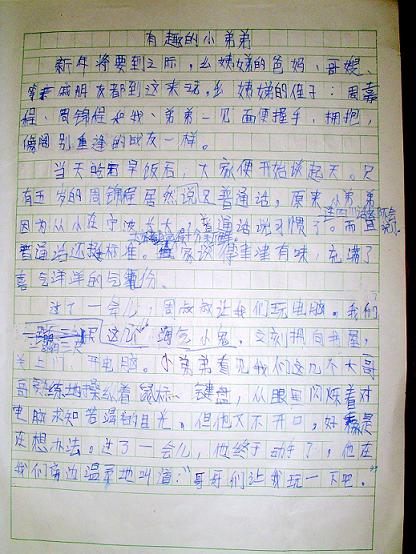 有趣的小弟弟
新年将要到之际,幺姨娣的爸妈、哥嫂、
亲戚朋友都到这来玩。幺姨娣的侄子:周嘉
程、周锦程和我、弟弟一见面便握手,拥抱,
像阔别重逢的战友一样。
当天的早饭后,大家便开始谈起天。只
有五岁的周锦程居然说只普通话,原来小弟弟
因为从小在宁波长大,普通话说习惯了。而且
连四川话都不会说了。
普通话还挺标准。大家谈得津津有味,充满了
喜气洋洋的气氛。
过了一会儿,周叔叔让我们玩电脑。我们
这几个淘气小鬼,立刻拥向书屋,
关上门,开电脑。小弟弟看见我们这几个大哥
哥熟练地操纵着鼠标、键盘,从眼里闪烁着对
电脑求知若渴的目光。但他又不开口,好像是
在想办法。过了一会儿,他终于动手了,他在
我们旁边温柔地叫道:“哥哥们让我玩一下吧。”